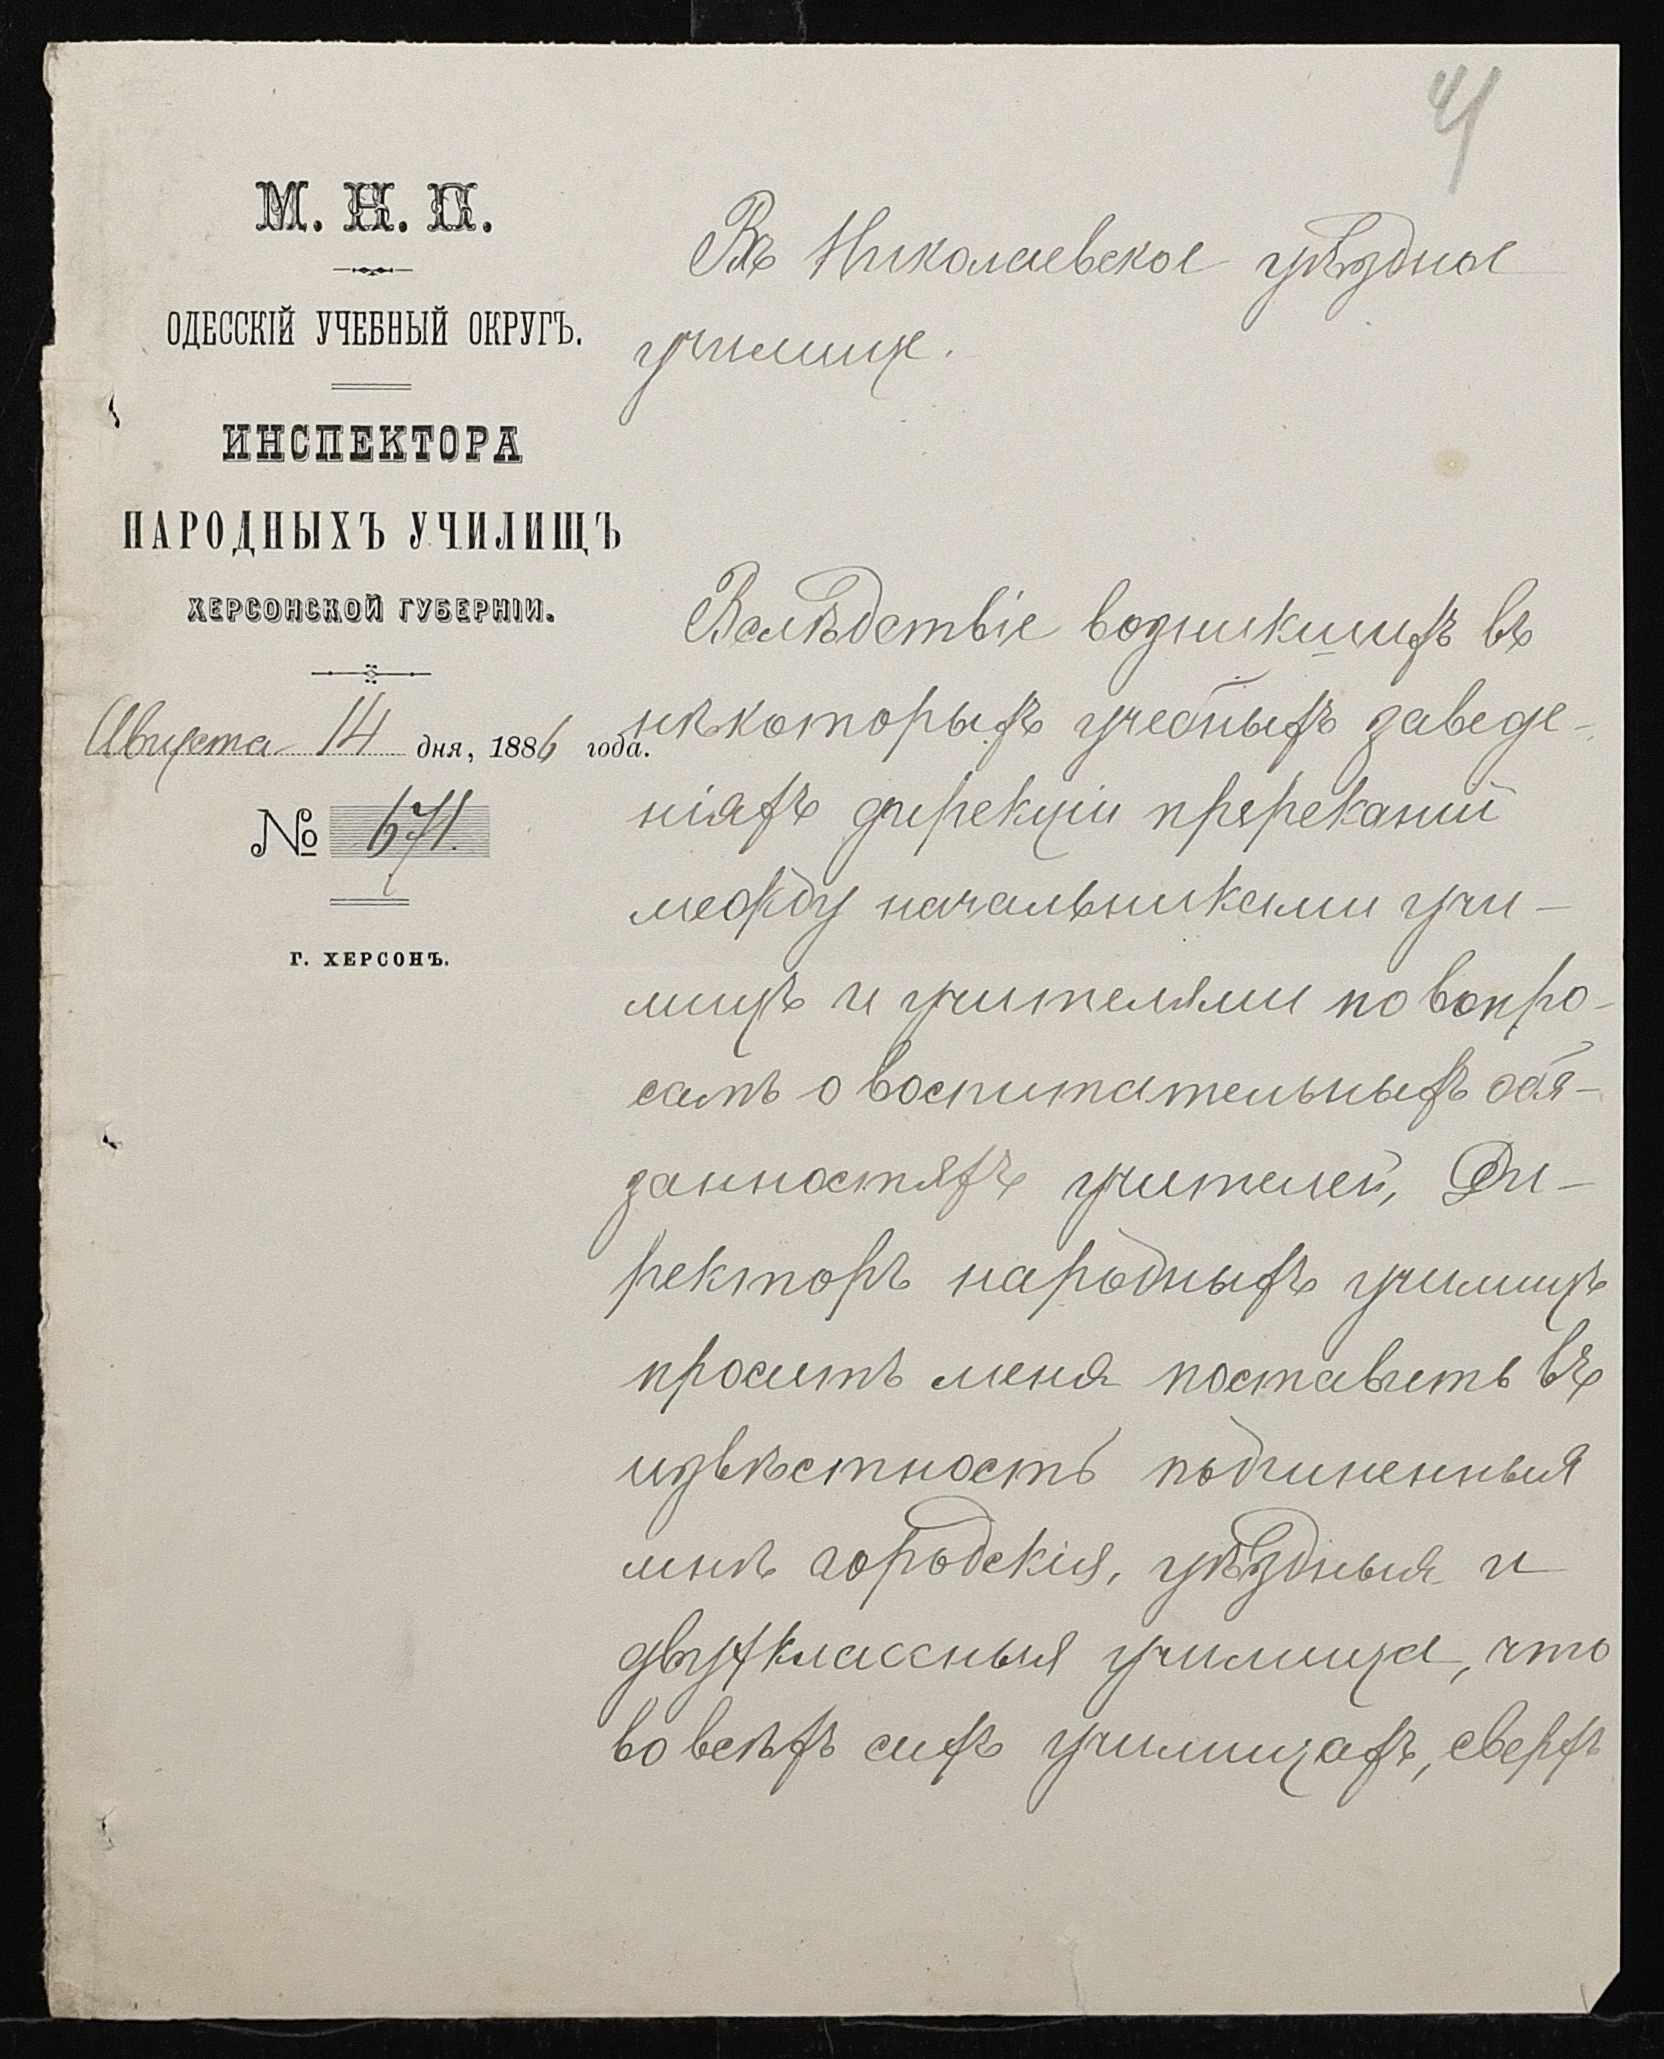 41
М. Н. П.
ОДЕССКІЙ УЧЕБНЫЙ ОКРУГЪ.
ИНСПЕКТОРА
НАРОДНЫХЪ УЧИЛИЩЪ
ХЕРСОНСКОЙ ГУБЕРНІИ.
Августа 14 дня, 1886 года.
№ 671.
Г. ХЕРСОНЪ.
Въ Николаевское уѣздное
училище.
Вслѣдствіе возникшихъ въ
нѣкоторыхъ учебныхъ заведе-
ніяхъ дирекціи пререканій
между начальниками учи-
лищъ и учителями по вопро-
самъ о воспитательныхъ обя-
занностяхъ учителей, Ди-
ректоръ народныхъ училищъ
проситъ меня поставить въ
извѣстность подчиненныя
мнѣ городскія, уѣздныя и
двухклассныя училища, что
во всѣхъ сихъ училищахъ, сверхъ